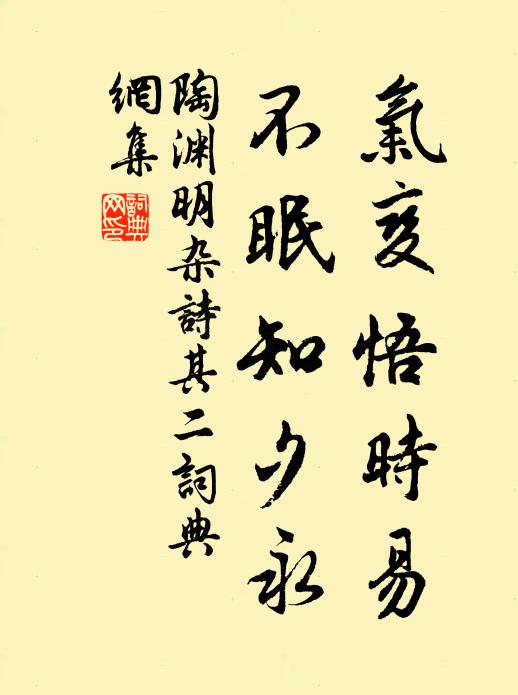 氣变悟時易
不眠知夕永
陶渊明杂詩其二詞典
網集
詞典
网印